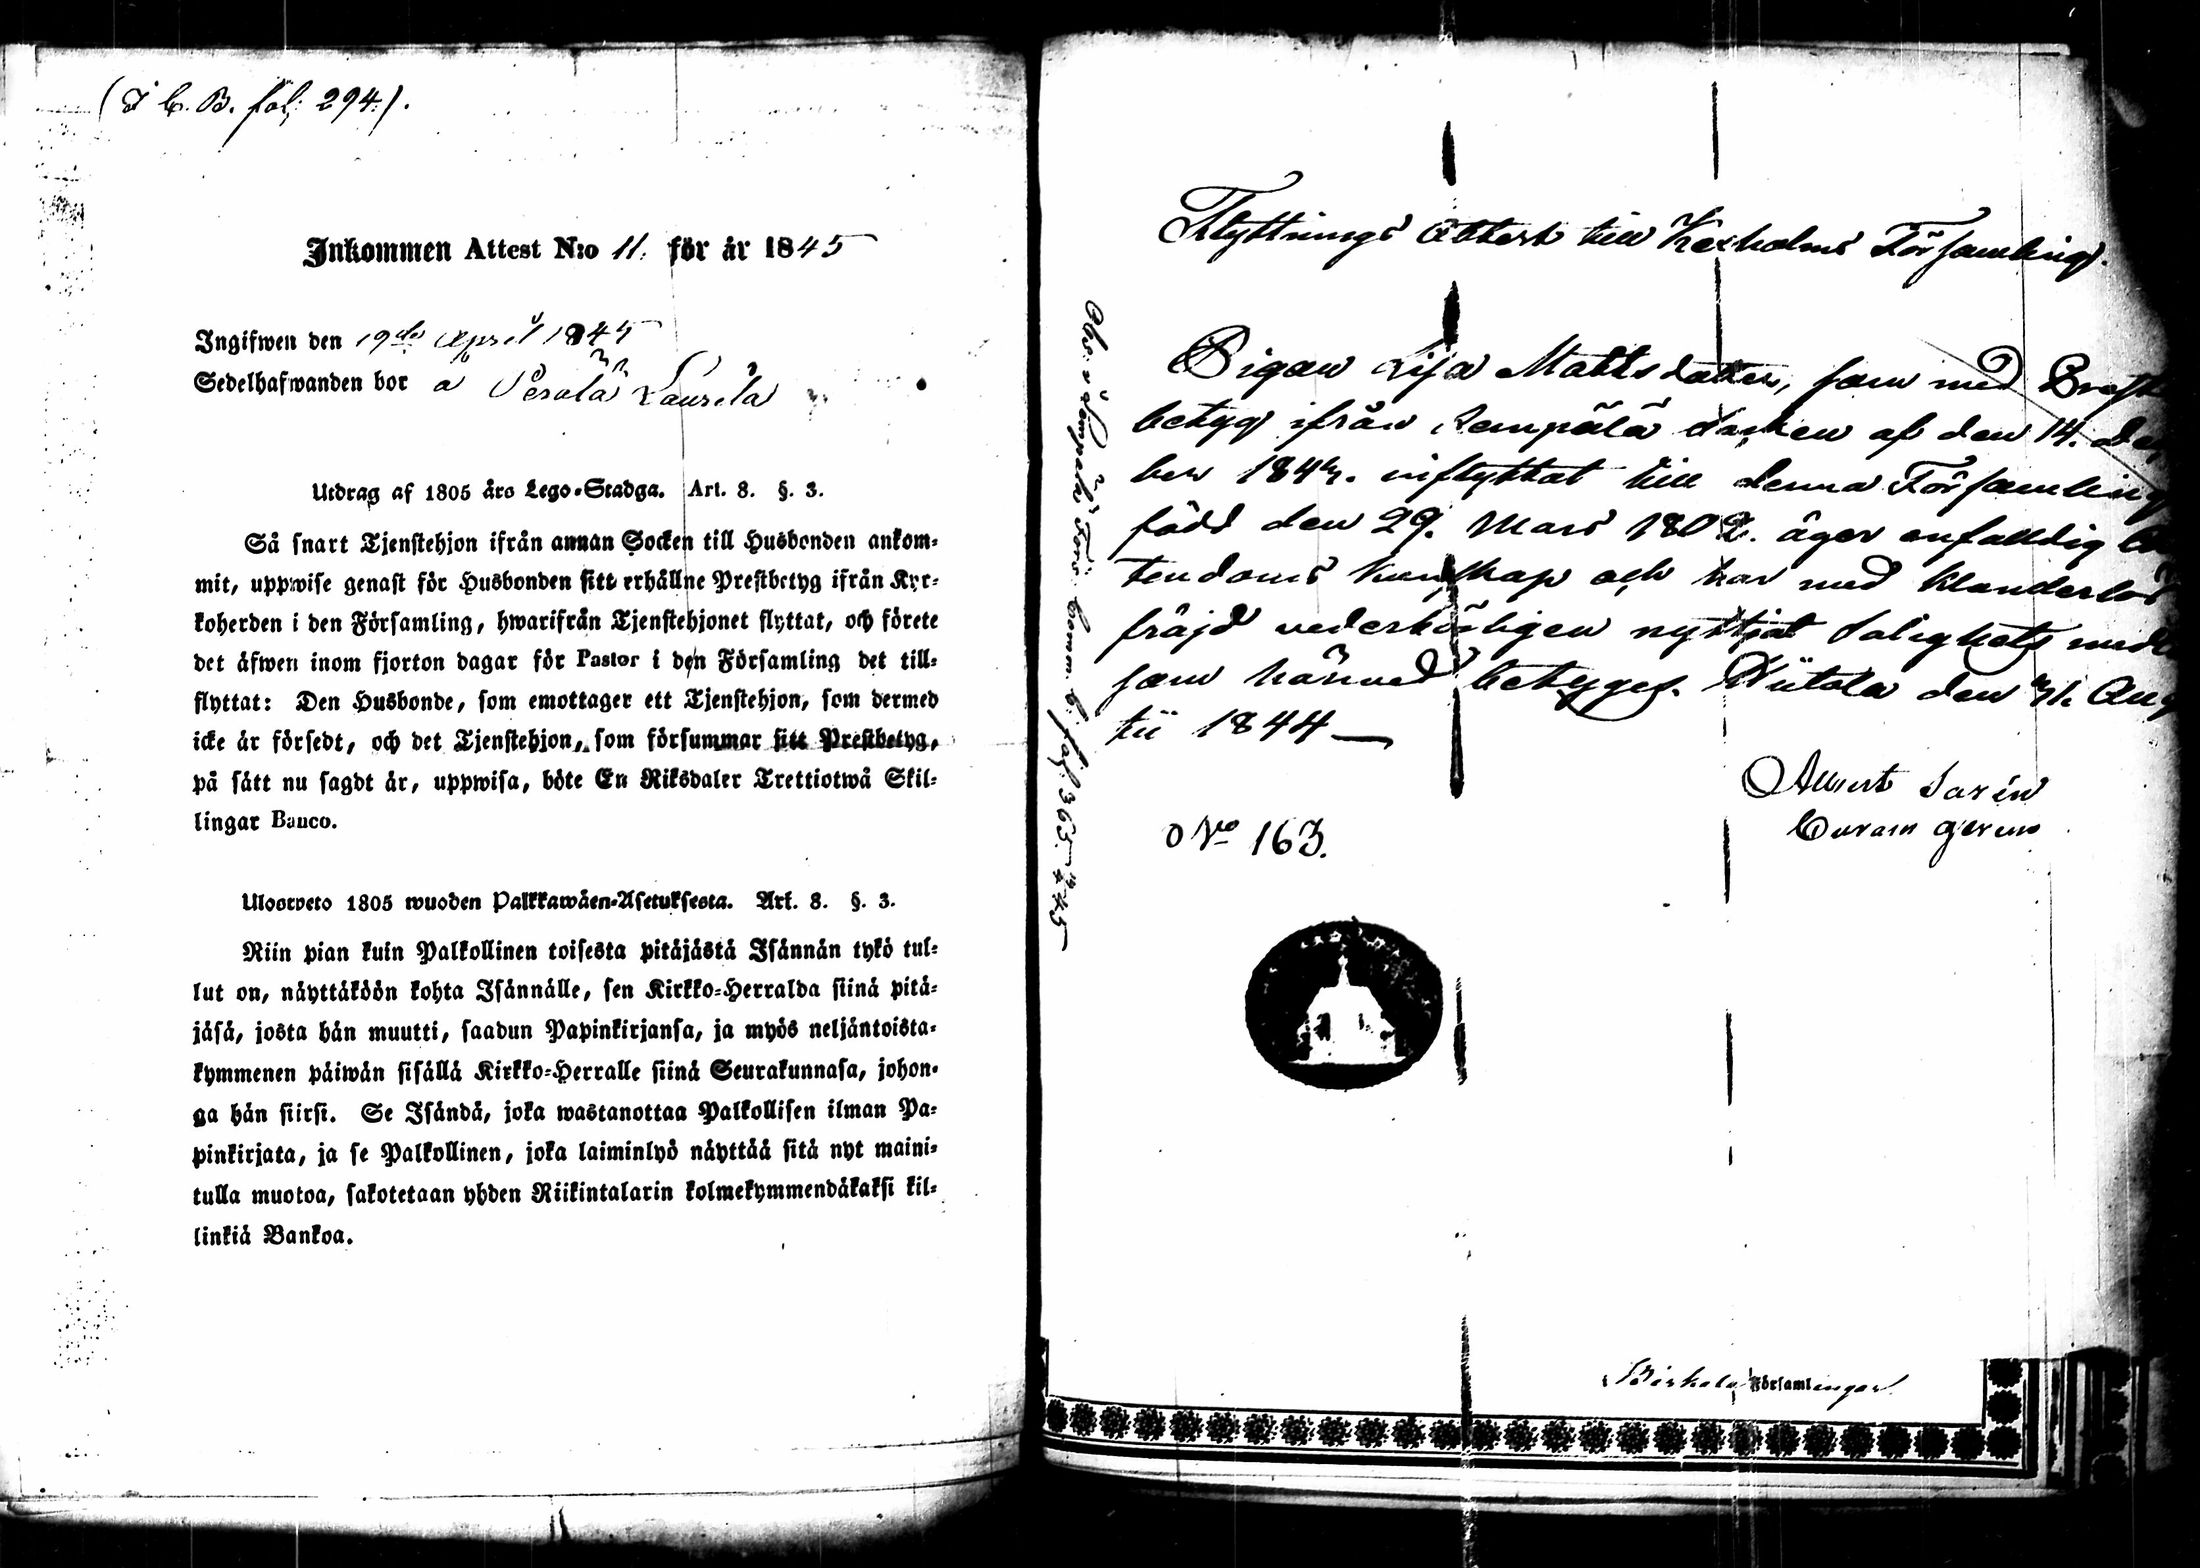 (I C. B. fol: 294.).
Inkommen Attest N:o 11. för år 1845
Ingifwen den 19de April 1845
Sedelhafwanden bor a Perälä Laurila
Utdrag af 1805 års Lego-Stadga. Art. 8. §. 3.
Så snart Tjenstehjon ifrån annan Socken till Husbonden ankom-
mit, uppwise genast för Husbonden sitt erhållne Prestbetyg ifrån Kyr-
koherden i den Församling, hwarifrån Tjenstehjonet flyttat, och förete
det äfwen inom fjorton dagar för Pastor i den Församling det till-
flyttat: Den Husbonde, som emottager ett Tjenstehjon, som dermed
icke är försedt, och det Tjenstehjon, som försummar sitt Prestbetyg,
på sätt nu sagdt är, uppwisa, böte En Riksdaler Trettiotwå Skil-
lingar Banco.
Ulosweto 1805 wuoden Palkkawäen-Asetuksesta. Art. 8. §. 3.
Niin pian kuin Palkollinen toisesta pitäjästä Isännän tykö tul-
lut on, näyttäköön kohta Isännälle, sen Kirkko-Herralda siinä pitä-
jäsä, josta hän muutti, saadun Papinkirjansa, ja myös neljäntoista-
kymmenen päiwän sisällä Kirkko-Herralle siinä Seurakunnasa, johon-
ga hän siirsi. Se Isändä, joka wastanottaa Palkollisen ilman Pa-
pinkirjata, ja se Palkollinen, joka laiminlyö näyttää sitä nyt maini-
tulla muotoa, sakotetaan yhden Riikintalarin kolmekymmendäkaksi kil-
linkiä Bankoa.
Flyttnings Attest till Kexholms Församling.
Pigan Lisa Mattsdotter, som med Prest
betyg ifrån Lempälä Socken af den 14.
ber 184 inflyttat till denna Församling
född den 29. Mars 1802. äger enfalldig
tendoms kunskap och har med klanderlös
fräjd vederbörligen nyttjat Salighets
som härmed betyges. Hiitola den 31. Aug
tii 1844 —
Albert Sorén
Curam gerens
No 163.
Obs. i Lempälä Förs. Comm. b. fol. 363. 45
Birkala Församlingar